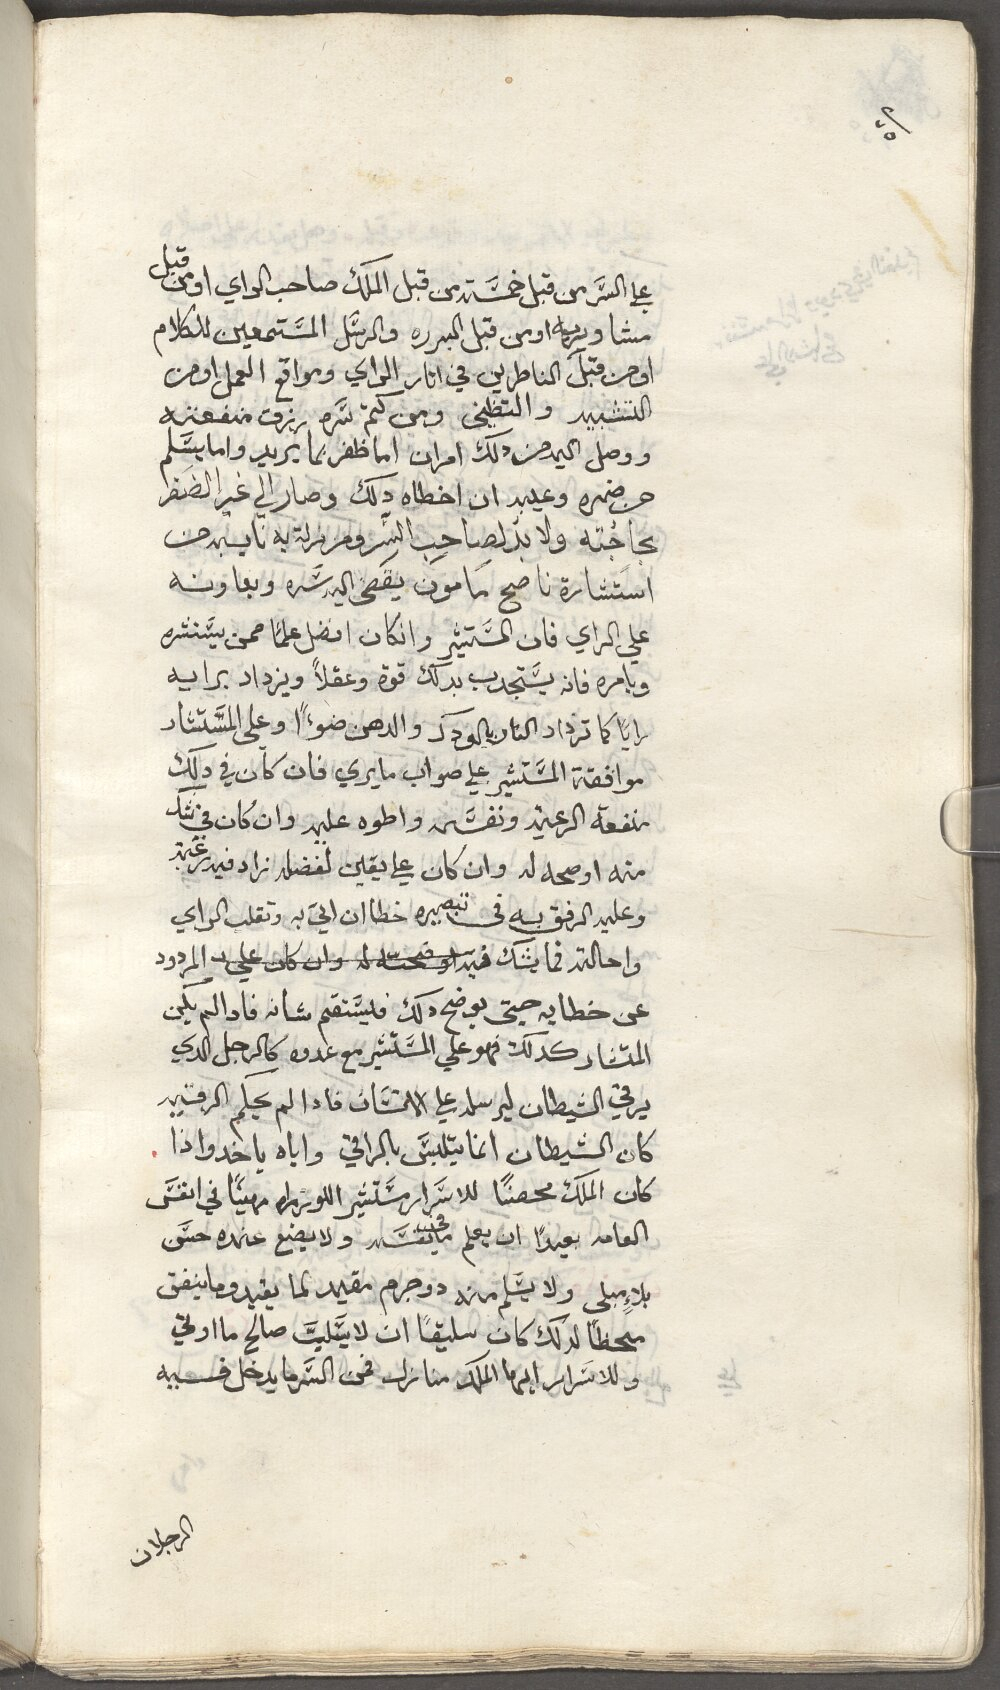 على السَّر من قبل خمسَّة من قبل الملك صاحب الراي او من قبل
مشاوريه او من قبل البرره والرسَّل المسَّتمعين للكلام
او من قبل الناظرين في اثار الراي ومواقع العمل او من
التشبيه والتظني ومن كتم سَّره رزق منفعته
ووصل اليه من دلك امران اما ظفر بما يريد واما يسَّلم
من ضره وعيبه ان اخطاه دلك وصار الي غير الظفر
بحاجته ولا بد لصاحب السَّر ومن نزلة به نايبه من
استَشارة ناصح مامون يفضى اليه بسَّره ويعاونه
علي الراي فان المسَّتشير وان كان افضل علمًا ممن يسَّتشره
ويامره فانه يسَّتجدب بدلك قوة وعقلاً ويزداد برايه
رايًا كما تزداد النار بالودك والدهن ضوءًا وعلى المسَّتشار
موافقة المسَّتشير علي صواب ما يري فان كان في دلك
منفعة الرعيه ونفسَّه واطوه عليه وان كان في شك
منه اوضحه له وان كان علي يقين لفضله زاد فيه رغبته
وعليه الرفق به في تبصيره خطا ان اتي به وتقلب الراي
واحالته فيما يشك فيه اوضحته له وان كان علي المردود
عن خطايه حيتى يوضح دلك فليسَّتقم شانه فادا لم يكن
المتشار كدلك فهو علي المسَّتشير مع عدوه كالرجل الدي
يرقي الشيطان ليرسله علي الانسَّان فادا لم يحكم الرقيه
كان الشيطان انما يتلبسَّ بالراقي واياه ياخد وادا
كان الملك محصنًا للاسَّرار مسَّتشير اللوزراه مهيبًا في انفسَّ
العامه بعيدًا ان يعلم ما في نفسَّه ولا يضيع عنده حسَّن
بلاءٍ مبلى ولا يسَّلم منه دو جرم مقيد لما يفيد وما ينفق
متحفظًا لدلك كان سليقًا ان لا يسَّليبَّ صالح ما اوتي
وللاسَّرار ايها الملك منازل فمن السَّر ما يدخل فيه
الرجلان